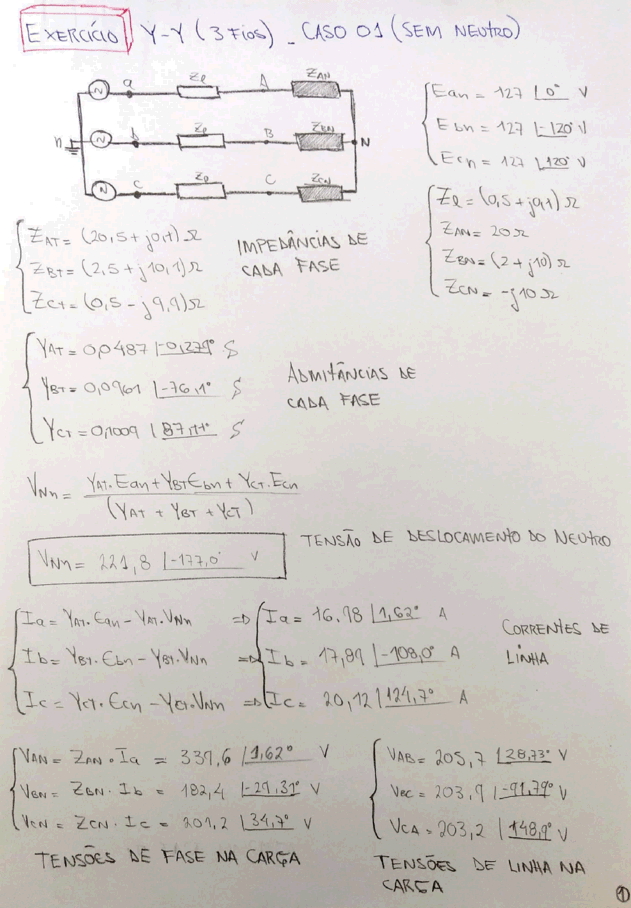 EXERCÍCIO Y-Y (3 FIOS) - CASO 01 (SEM NEUTRO)
a Zl A ZAN
n b Zl B ZBN N
c Zl C ZCN
Ean = 127 ∠0° V
Ebn = 127 ∠-120° V
Ecn = 127 ∠120° V
Zl = (0,5+j0,1) Ω
ZAN = 20 Ω
ZBN = (2+j10) Ω
ZCN = -j10 Ω
ZAT = (20,5+j0,1) Ω
ZBT = (2,5+j10,1) Ω
ZCT = (0,5-j9,9) Ω
IMPEDÂNCIAS DE
CADA FASE
YAT = 0,0487 ∠-0,279° S
YBT = 0,0961 ∠-76,1° S
YCT = 0,1009 ∠87,11° S
ADMITÂNCIAS DE
CADA FASE
VNn = YAT.Ean + YBT.Ebn + YCT.Ecn
(YAT + YBT + YCT)
VNn = 221,8 ∠-177,0° V
TENSÃO DE DESLOCAMENTO DO NEUTRO
Ia = YAT.Ean - YAT.VNn ⇒ Ia = 16,98 ∠1,62° A
Ib = YBT.Ebn - YBT.VNn ⇒ Ib = 17,89 ∠-108,0° A
Ic = YCT.Ecn - YCT.VNn ⇒ Ic = 20,12 ∠124,7° A
CORRENTES DE
LINHA
VAN = ZAN.Ia = 339,6 ∠1,62° V
VBN = ZBN.Ib = 182,4 ∠-29,31° V
VCN = ZCN.Ic = 201,2 ∠34,7° V
TENSÕES DE FASE NA CARGA
VAB = 205,7 ∠28,73° V
VBC = 203,9 ∠-91,79° V
VCA = 203,2 ∠148,9° V
TENSÕES DE LINHA NA
CARGA
1